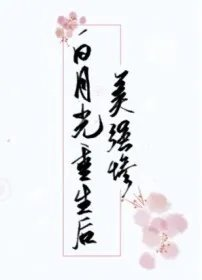 美强惨
白月光重生后